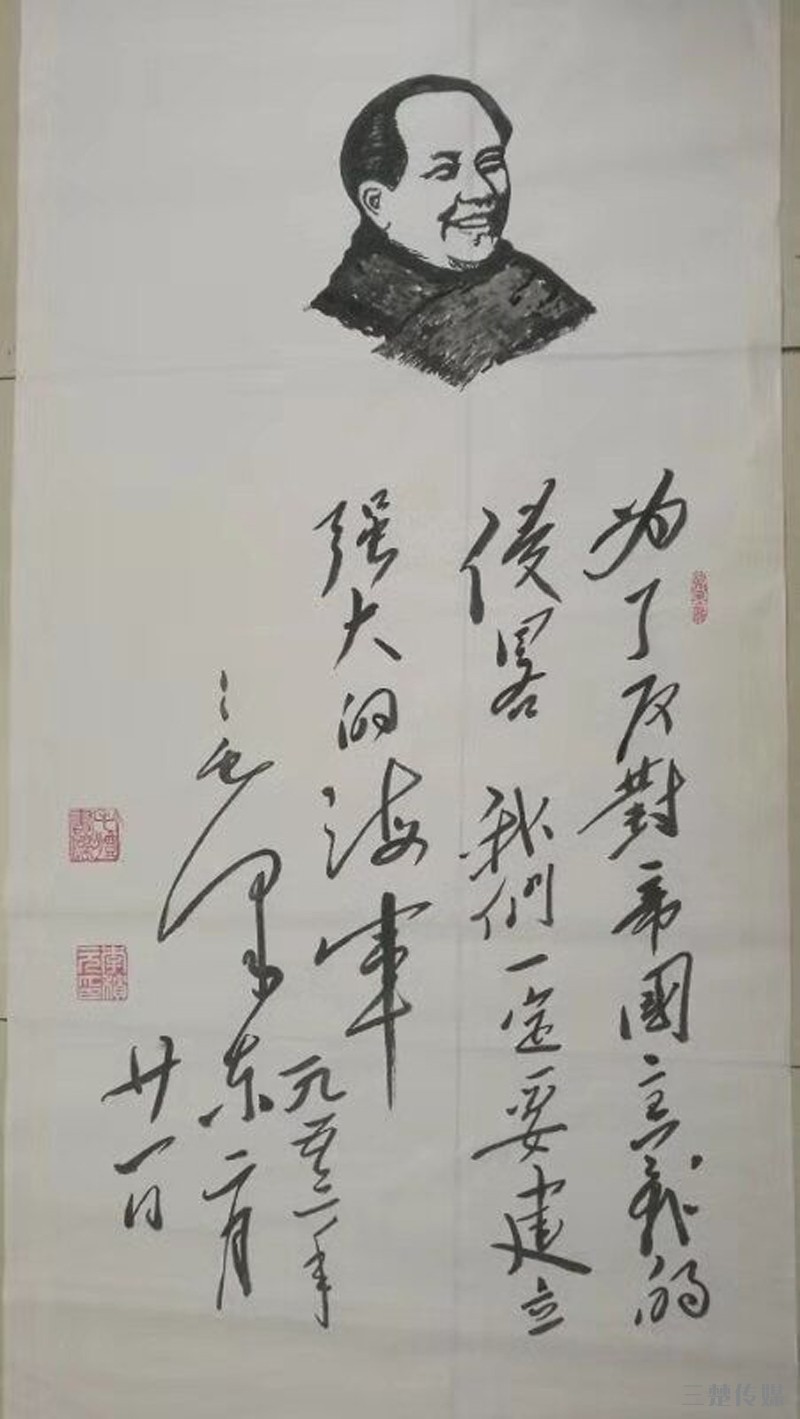 为了反對帝國主義的
侵畧 我們一定要建立
强大的海軍
一九五三年
毛澤东 二月
廿一日
三楚传媒